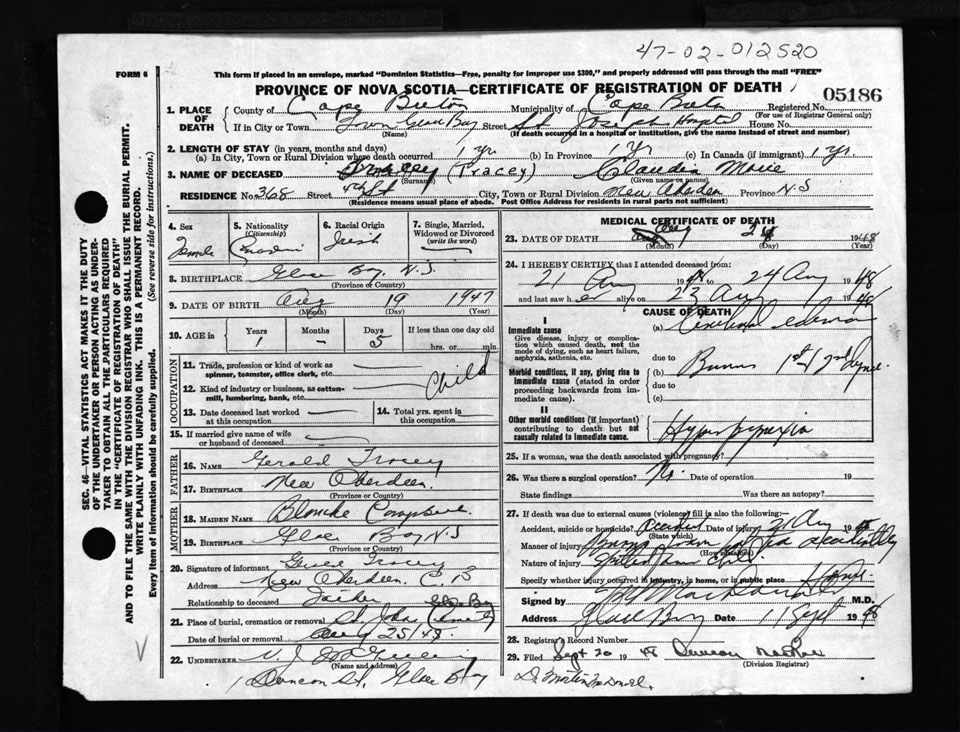 47-02-012520
FORM 6
This form if placed in an envelope, marked "Dominion Statistics—Free, penalty for improper use $300," and properly addressed will pass through the mail "FREE"
PROVINCE OF NOVA SCOTIA—CERTIFICATE OF REGISTRATION OF DEATH
05186
1. PLACE OF DEATH
County of Cape Breton Municipality of Cape Breton Registered No.
(For use of Registrar General only)
If in City or Town Town Glace Bay Street St. Joseph Hospital House No.
(Name) (If death occurred in a hospital or institution, give the name instead of street and number)
2. LENGTH OF STAY (in years, months and days)
(a) In City, Town or Rural Division where death occurred 1 yr (b) In Province 1 yr (c) In Canada (if immigrant) 1 yr.
3. NAME OF DECEASED (Tracey) Claudia Marie
(Surname) (Given name or names)
RESIDENCE No. 368 Street 4th St City, Town or Rural Division New Aberdeen Province N.S
(Residence means usual place of abode. Post Office Address for residents in rural parts not sufficient)
SEC. 46—VITAL STATISTICS ACT MAKES IT THE DUTY OF THE UNDERTAKER OR PERSON ACTING AS UNDERTAKER TO OBTAIN ALL THE PARTICULARS REQUIRED IN THE "CERTIFICATE OF REGISTRATION OF DEATH" AND TO FILE THE SAME WITH THE DIVISION REGISTRAR WHO SHALL ISSUE THE BURIAL PERMIT.
WRITE PLAINLY WITH UNFADING INK. THIS IS A PERMANENT RECORD.
Every item of information should be carefully supplied. (See reverse side for instructions.)
4. Sex Female
5. Nationality (Citizenship) Canadian
6. Racial Origin Irish
7. Single, Married, Widowed or Divorced (write the word)
8. BIRTHPLACE Glace Bay, N.S.
(Province or Country)
9. DATE OF BIRTH Aug 19 1947
(Month) (Day) (Year)
10. AGE in Years Months Days If less than one day old
1 – 5 hrs. or min.
OCCUPATION
11. Trade, profession or kind of work as spinner, teamster, office clerk, etc.
12. Kind of industry or business, as cotton-mill, lumbering, bank, etc. Child
13. Date deceased last worked at this occupation
14. Total yrs. spent in this occupation
15. If married give name of wife or husband of deceased
FATHER
16. NAME Gerald Tracey
17. BIRTHPLACE New Aberdeen.
(Province or Country)
MOTHER
18. MAIDEN NAME Blanche Campbell
19. BIRTHPLACE Glace Bay N.S
(Province or Country)
20. Signature of informant Gerald Tracey
Address New Aberdeen. C.B
Relationship to deceased Father
21. Place of burial, cremation or removal St. John Glace Bay
Date of burial or removal Aug 25/48.
22. UNDERTAKER V. J.
(Name and address)
Duncan St. Glace Bay
MEDICAL CERTIFICATE OF DEATH
23. DATE OF DEATH Aug 24 1948
(Month) (Day) (Year)
24. I HEREBY CERTIFY that I attended deceased from:
21 Aug 1948 to 24 Aug 1948
and last saw her alive on 23 Aug 1948
CAUSE OF DEATH
I
Immediate cause
Give disease, injury or complication which caused death, not the mode of dying, such as heart failure, asphyxia, asthenia, etc.
(a) Cerebral edema
due to
Morbid conditions, if any, giving rise to immediate cause (stated in order proceeding backwards from immediate cause).
(b) Burns 1st & 2nd degree.
due to
(c)
II
Other morbid conditions (if important) contributing to death but not causally related to immediate cause.
Hyperpyrexia
25. If a woman, was the death associated with pregnancy?
26. Was there a surgical operation? No Date of operation 19
State findings Was there an autopsy?
27. If death was due to external causes (violence) fill in also the following:
Accident, suicide or homicide? Accident Date of injury 21 Aug 1948
(State which)
Manner of injury Burns from hot tea accidentally
(How sustained)
Nature of injury
Specify whether injury occurred in industry, in home, or in public place Home.
Signed by M.D.
Address Glace Bay Date 1 Sept 1948
28. Registrar's Record Number
29. Filed Sept 20 1948 Duncan
(Division Registrar)
D.